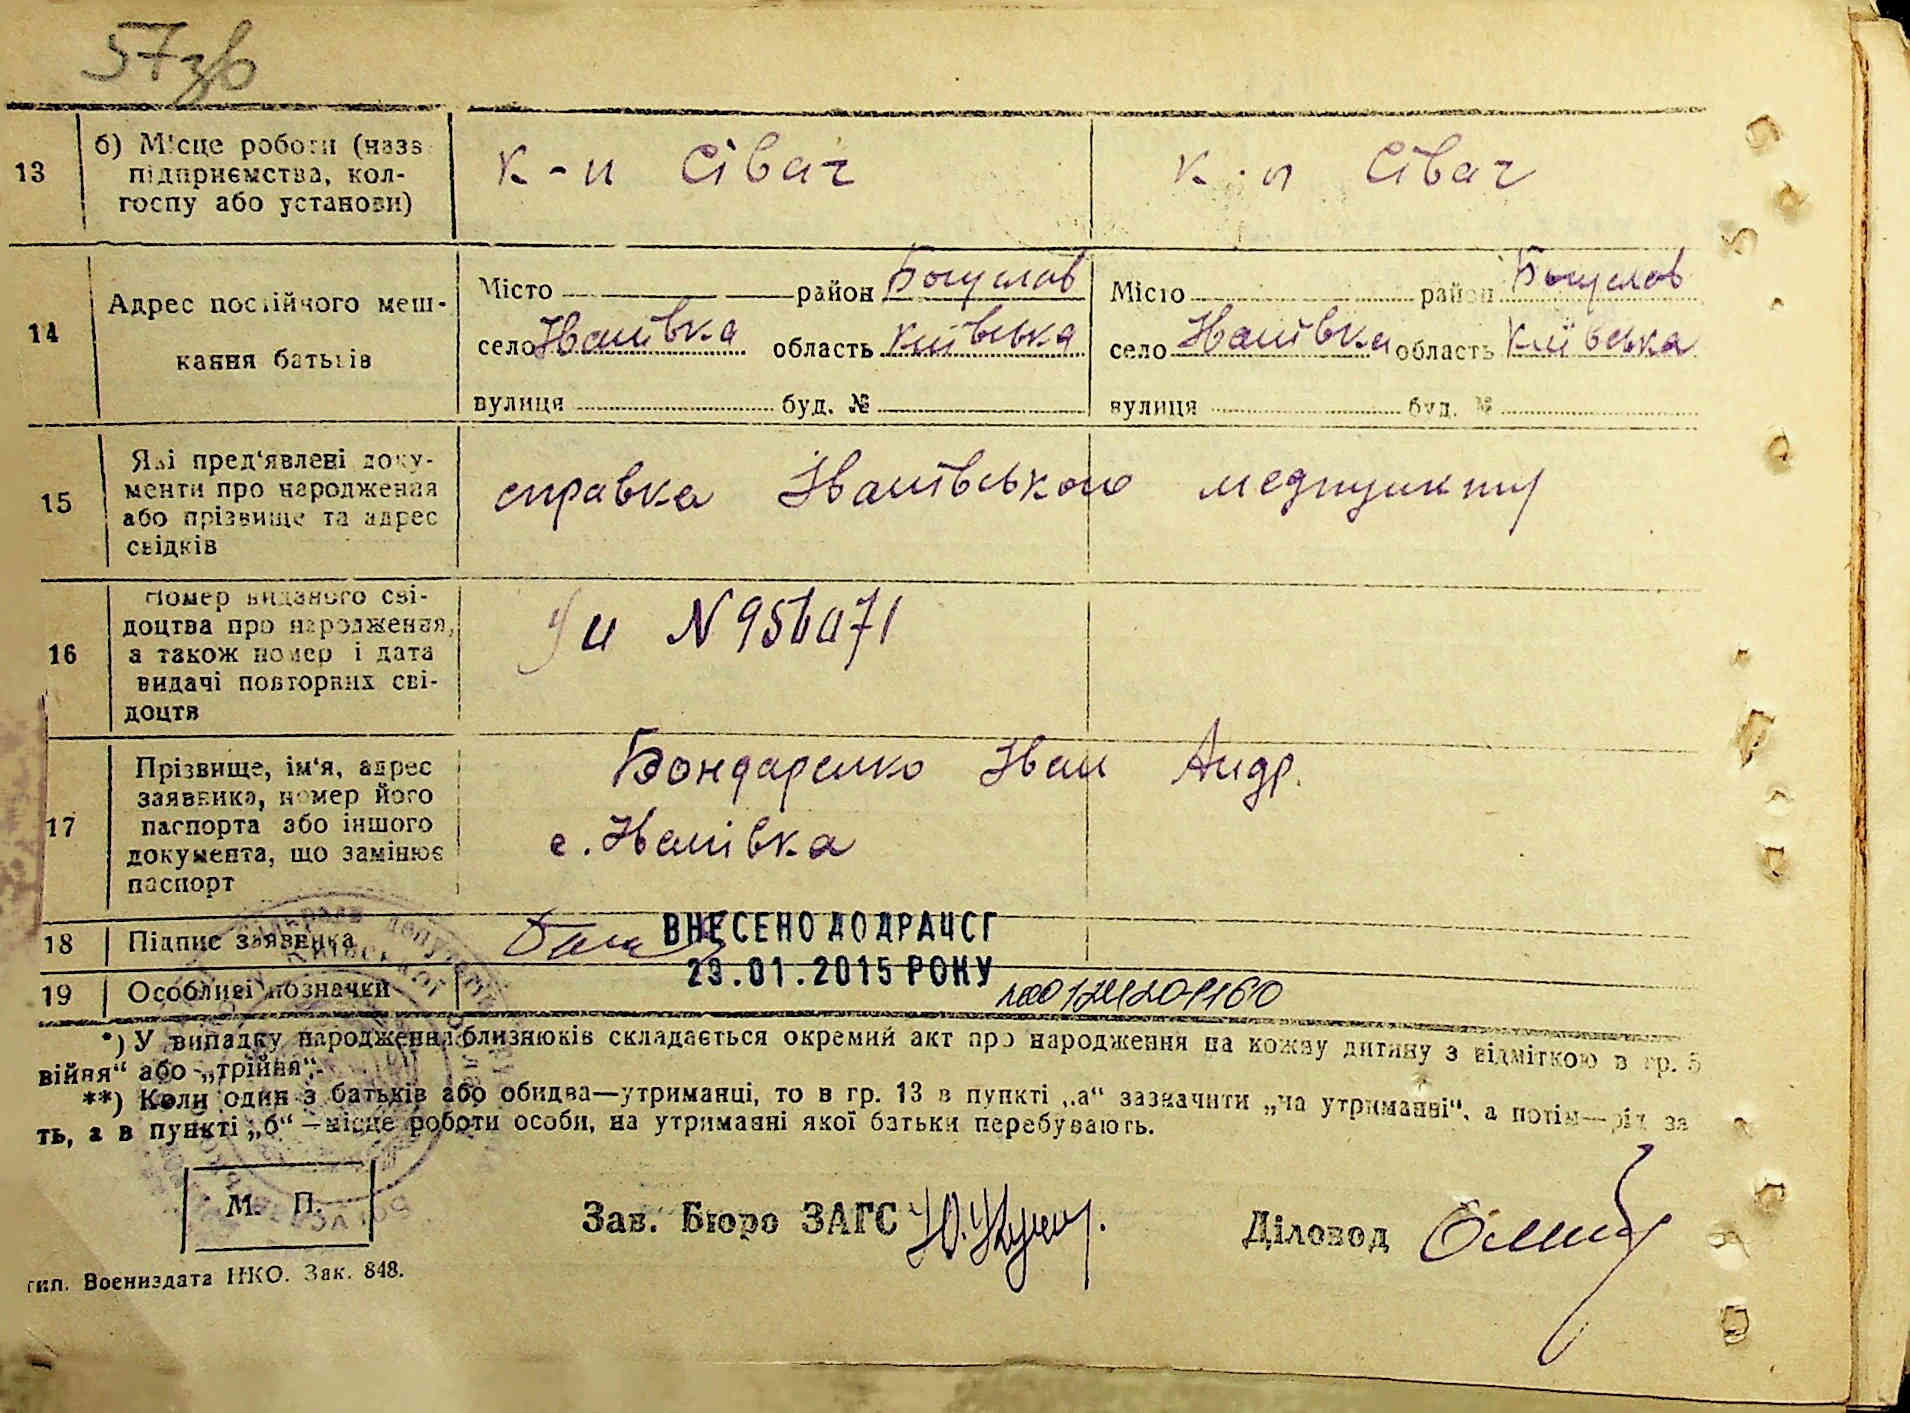 57зв
13
б) Місце роботи (назв
підприємства, кол-
госпу або установи)
к-п Сівач
к-п Сівач
14
Адрес постійного меш-
кання батьків
Місто район Богуслав
село Іванівка область Київська
вулиця буд. №
Місто район Богуслав
село Іванівка область Київська
вулиця буд. №
15
Які пред'явлені доку-
менти про народження
або прізвище та адрес
свідків
справка Іванівського медпункту
16
Номер виданого сві-
доцтва про народження,
а також номер і дата
видачі повторних сві-
доцтв
N
17
Прізвище, ім'я, адрес
заявника, номер його
паспорта або іншого
документа, що замінює
паспорт
Бондаренко Іван Андр.
с. Іванівка
18
Підпис заявника
ВНЕСЕНО ДО ДРАЦСГ
23.01.2015 РОКУ
19
Особливі позначки
*) У випадку народження близнюків складається окремий акт про народження на кожну дитину з відміткою в гр. 5
війня“ або „трійня“.
**) Коли один з батьків або обидва—утриманці, то в гр. 13 в пункті „а“ зазначити „на утриманні“, а потім—рід за
ть, а в пункті „б“—місце роботи особи, на утриманні якої батьки перебувають.
М. П.
Зав. Бюро ЗАГС
Діловод
тип. Воениздата НКО. Зак. 848.